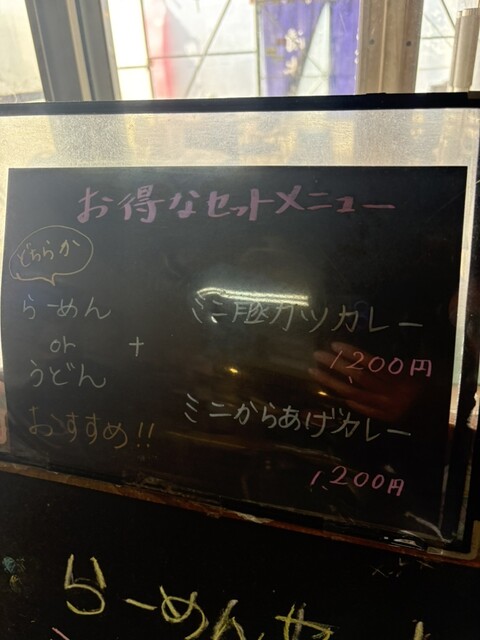 お得なセットメニュー
どちらか
らーめん
or
うどん
+
ミニ豚カツカレー
1,200円
ミニからあげカレー
1,200円
おすすめ!!
らーめん